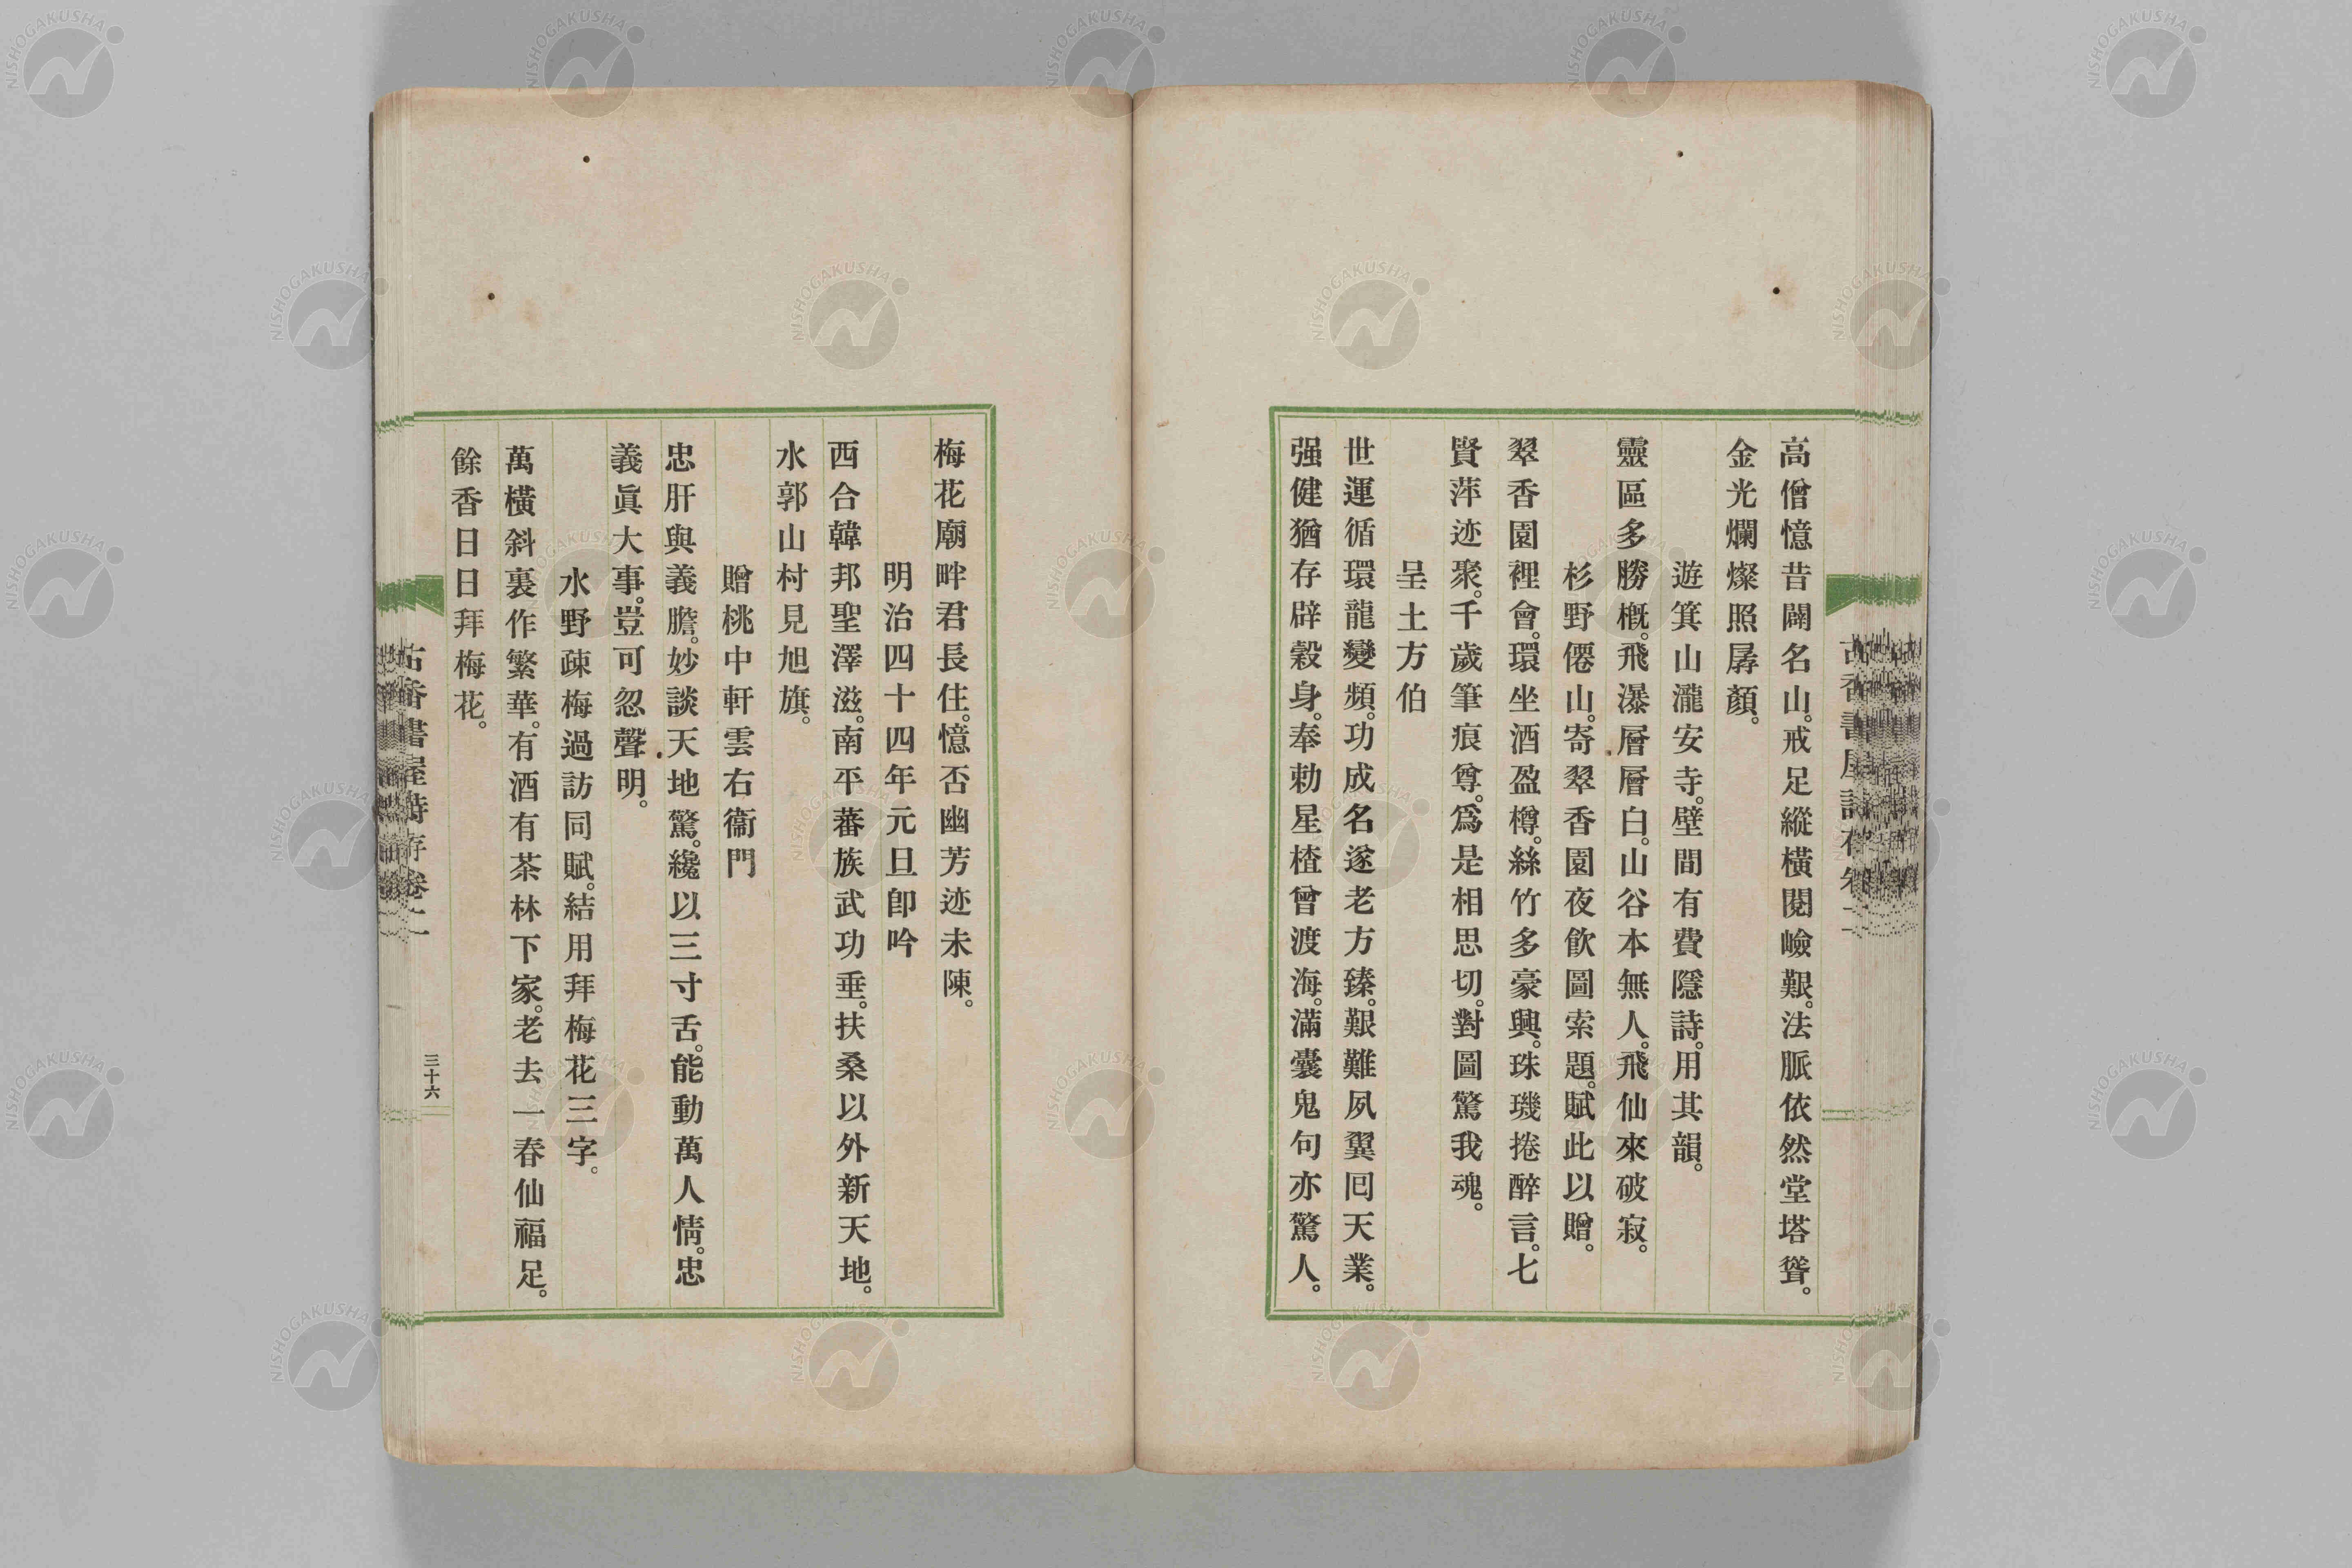 高僧憶昔闢名山。戒足縱橫閱嶮艱。法脈依然堂塔聳。
金光爛燦照孱顏。
遊箕山瀧安寺。壁間有費隱詩。用其韻。
靈區多勝槪。飛瀑層層白。山谷本無人。飛仙來破寂。
杉野僊山。寄翠香園夜飮圖索題。賦此以贈。
翠香園裡會。環坐酒盈樽。絲竹多豪興。珠璣捲醉言。七
賢萍迹聚。千歲筆痕尊。爲是相思切。對圖驚我魂。
呈土方伯
世運循環龍變頻。功成名遂老方臻。艱難夙翼回天業。
强健猶存辟穀身。奉勅星楂曾渡海。滿囊鬼句亦驚人。
梅花廟畔君長住。憶否幽芳迹未陳。
明治四十四年元旦卽吟
西合韓邦聖澤滋。南平蕃族武功垂。扶桑以外新天地。
水郭山村見旭旗。
贈桃中軒雲右衞門
忠肝與義膽。妙談天地驚。纔以三寸舌。能動萬人情。忠
義眞大事。豈可忽聲明。
水野疎梅過訪同賦。結用拜梅花三字。
萬橫斜裏作繁華。有酒有茶林下家。老去一春仙福足。
餘香日日拜梅花。
古香書屋詩存卷二
三十六
NISHOGAKUSHA